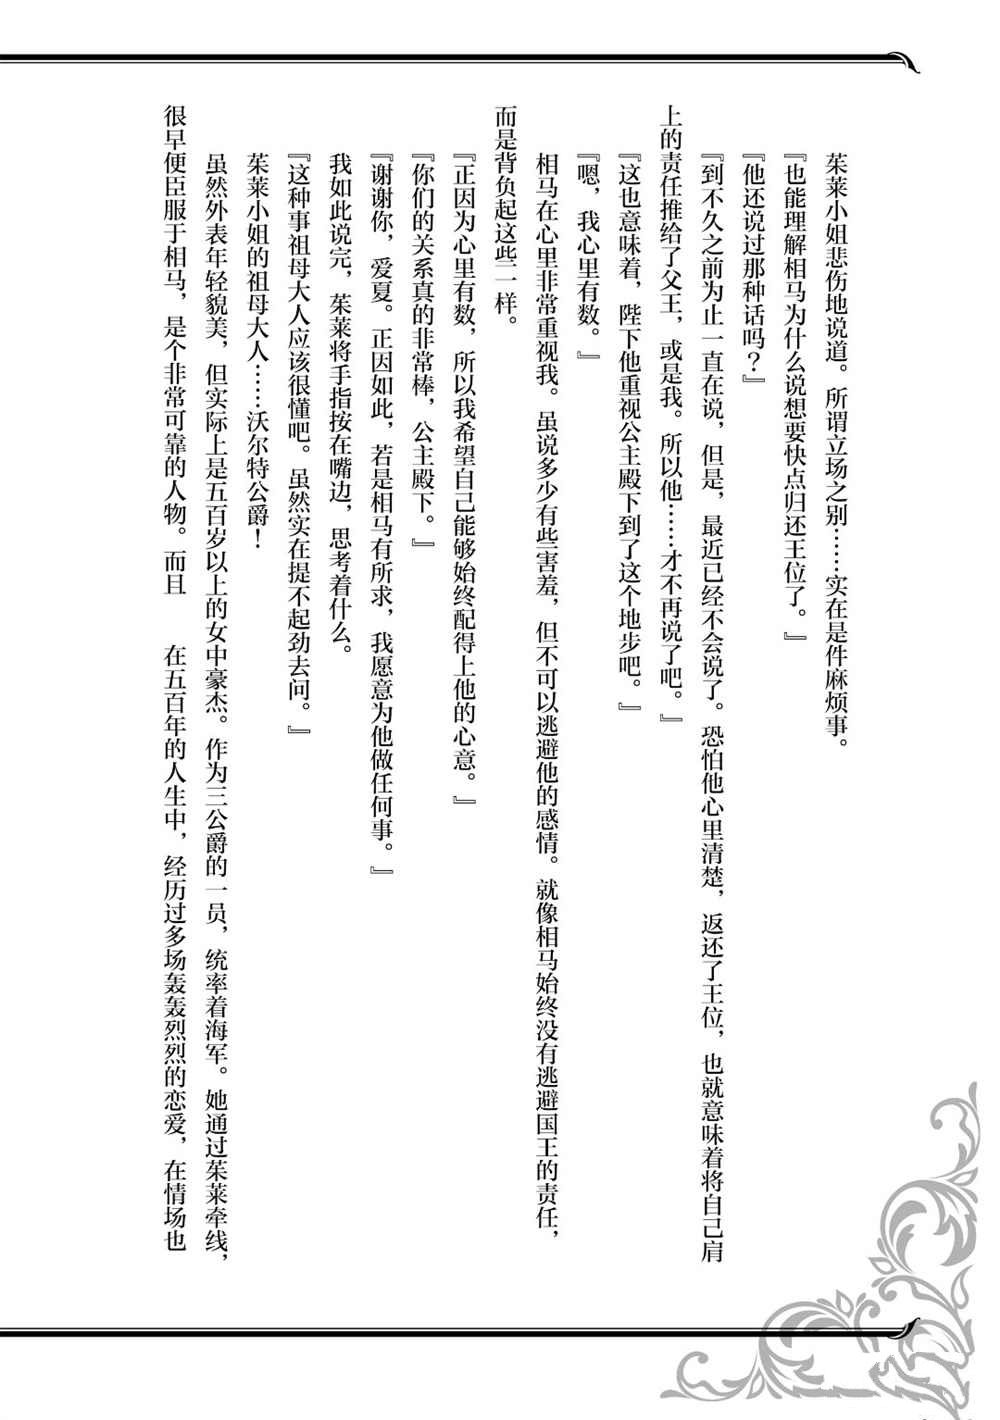 茱莱小姐悲伤地说道。所谓立场之别……实在是件麻烦事。
『也能理解相马为什么说想要快点归还王位了。』
『他还说过那种话吗？』
『到不久之前为止一直在说，但是，最近已经不会说了。恐怕他心里清楚，返还了王位，也就意味着将自己肩
上的责任推给了父王，或是我。所以他……才不再说了吧。』
『这也意味着，陛下他重视公主殿下到了这个地步吧。』
『嗯，我心里有数。』
相马在心里非常重视我。虽说多少有些害羞，但不可以逃避他的感情。就像相马始终没有逃避国王的责任，
而是背负起这些一样。
『正因为心里有数，所以我希望自己能够始终配得上他的心意。』
『你们的关系真的非常棒，公主殿下。』
『谢谢你，爱夏。正因如此，若是相马有所求，我愿意为他做任何事。』
我如此说完，茱莱将手指按在嘴边，思考着什么。
『这种事祖母大人应该很懂吧。虽然实在提不起劲去问。』
茱莱小姐的祖母大人……沃尔特公爵！
虽然外表年轻貌美，但实际上是五百岁以上的女中豪杰。作为三公爵的一员，统率着海军。她通过茱莱牵线，
很早便臣服于相马，是个非常可靠的人物。而且　　在五百年的人生中，经历过多场轰轰烈烈的恋爱，在情场也